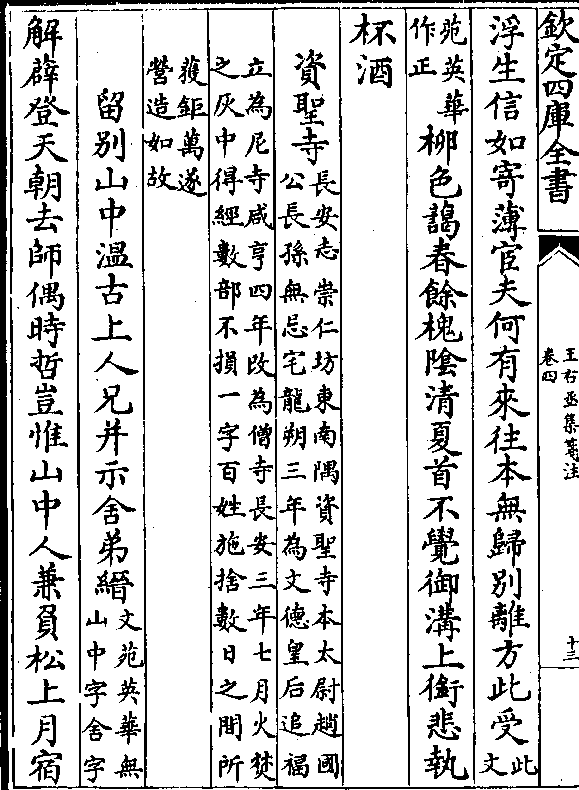 欽定四庫全書
王右丞集箋注
卷四
十三
浮生信如寄薄宦夫何有來往本無歸別離方此受此文
苑英華作正柳色藹春餘槐陰清夏首不覺御溝上銜悲執
杯酒
資聖寺長安志崇仁坊東南隅資聖寺本太尉趙國
公長孫無忌宅龍朔三年為文德皇后追福
立為尼寺咸亨四年改為僧寺長安三年七月火焚
之灰中得經數部不損一字百姓施捨數日之間所
獲鉅萬遂
營造如故
留別山中溫古上人兄并示舍弟縉文苑英華無
山中字舍字
解薜登天朝去師偶時哲豈惟山中人兼負松上月宿